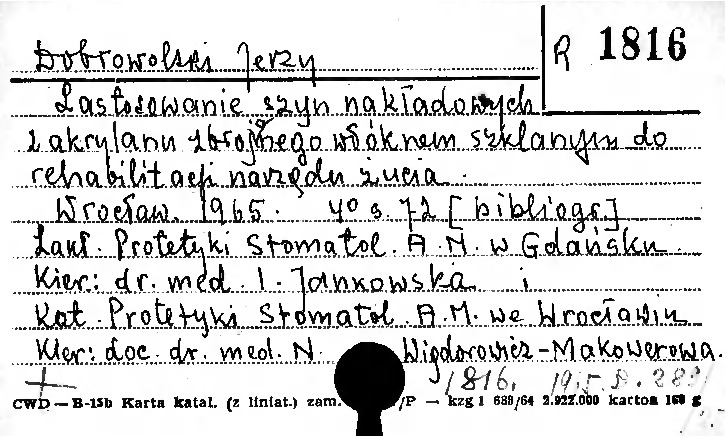 Dobrowolski Jerzy
R 1816
Zastosowanie szyn nakładowych
z akrylanu zbrojonego włóknem szklanym do
rehabilitacji narządu żucia.
Wrocław. 1965. 40 s. 72 [bibliogr.]
Zakł. Protetyki Stomatol. A.M. w Gdańsku.
Kier: dr. med. I. Jankowska i
Kat. Protetyki Stomatol. A.M. we Wrocławiu
Kier: doc. dr. med. N. Wigdorowicz-Makowerowa.
1816.
CWD — B-15b Karta katal. (z liniat.) zam. /P — kzg 1 689/64 2.922.000 kartoa 160 g